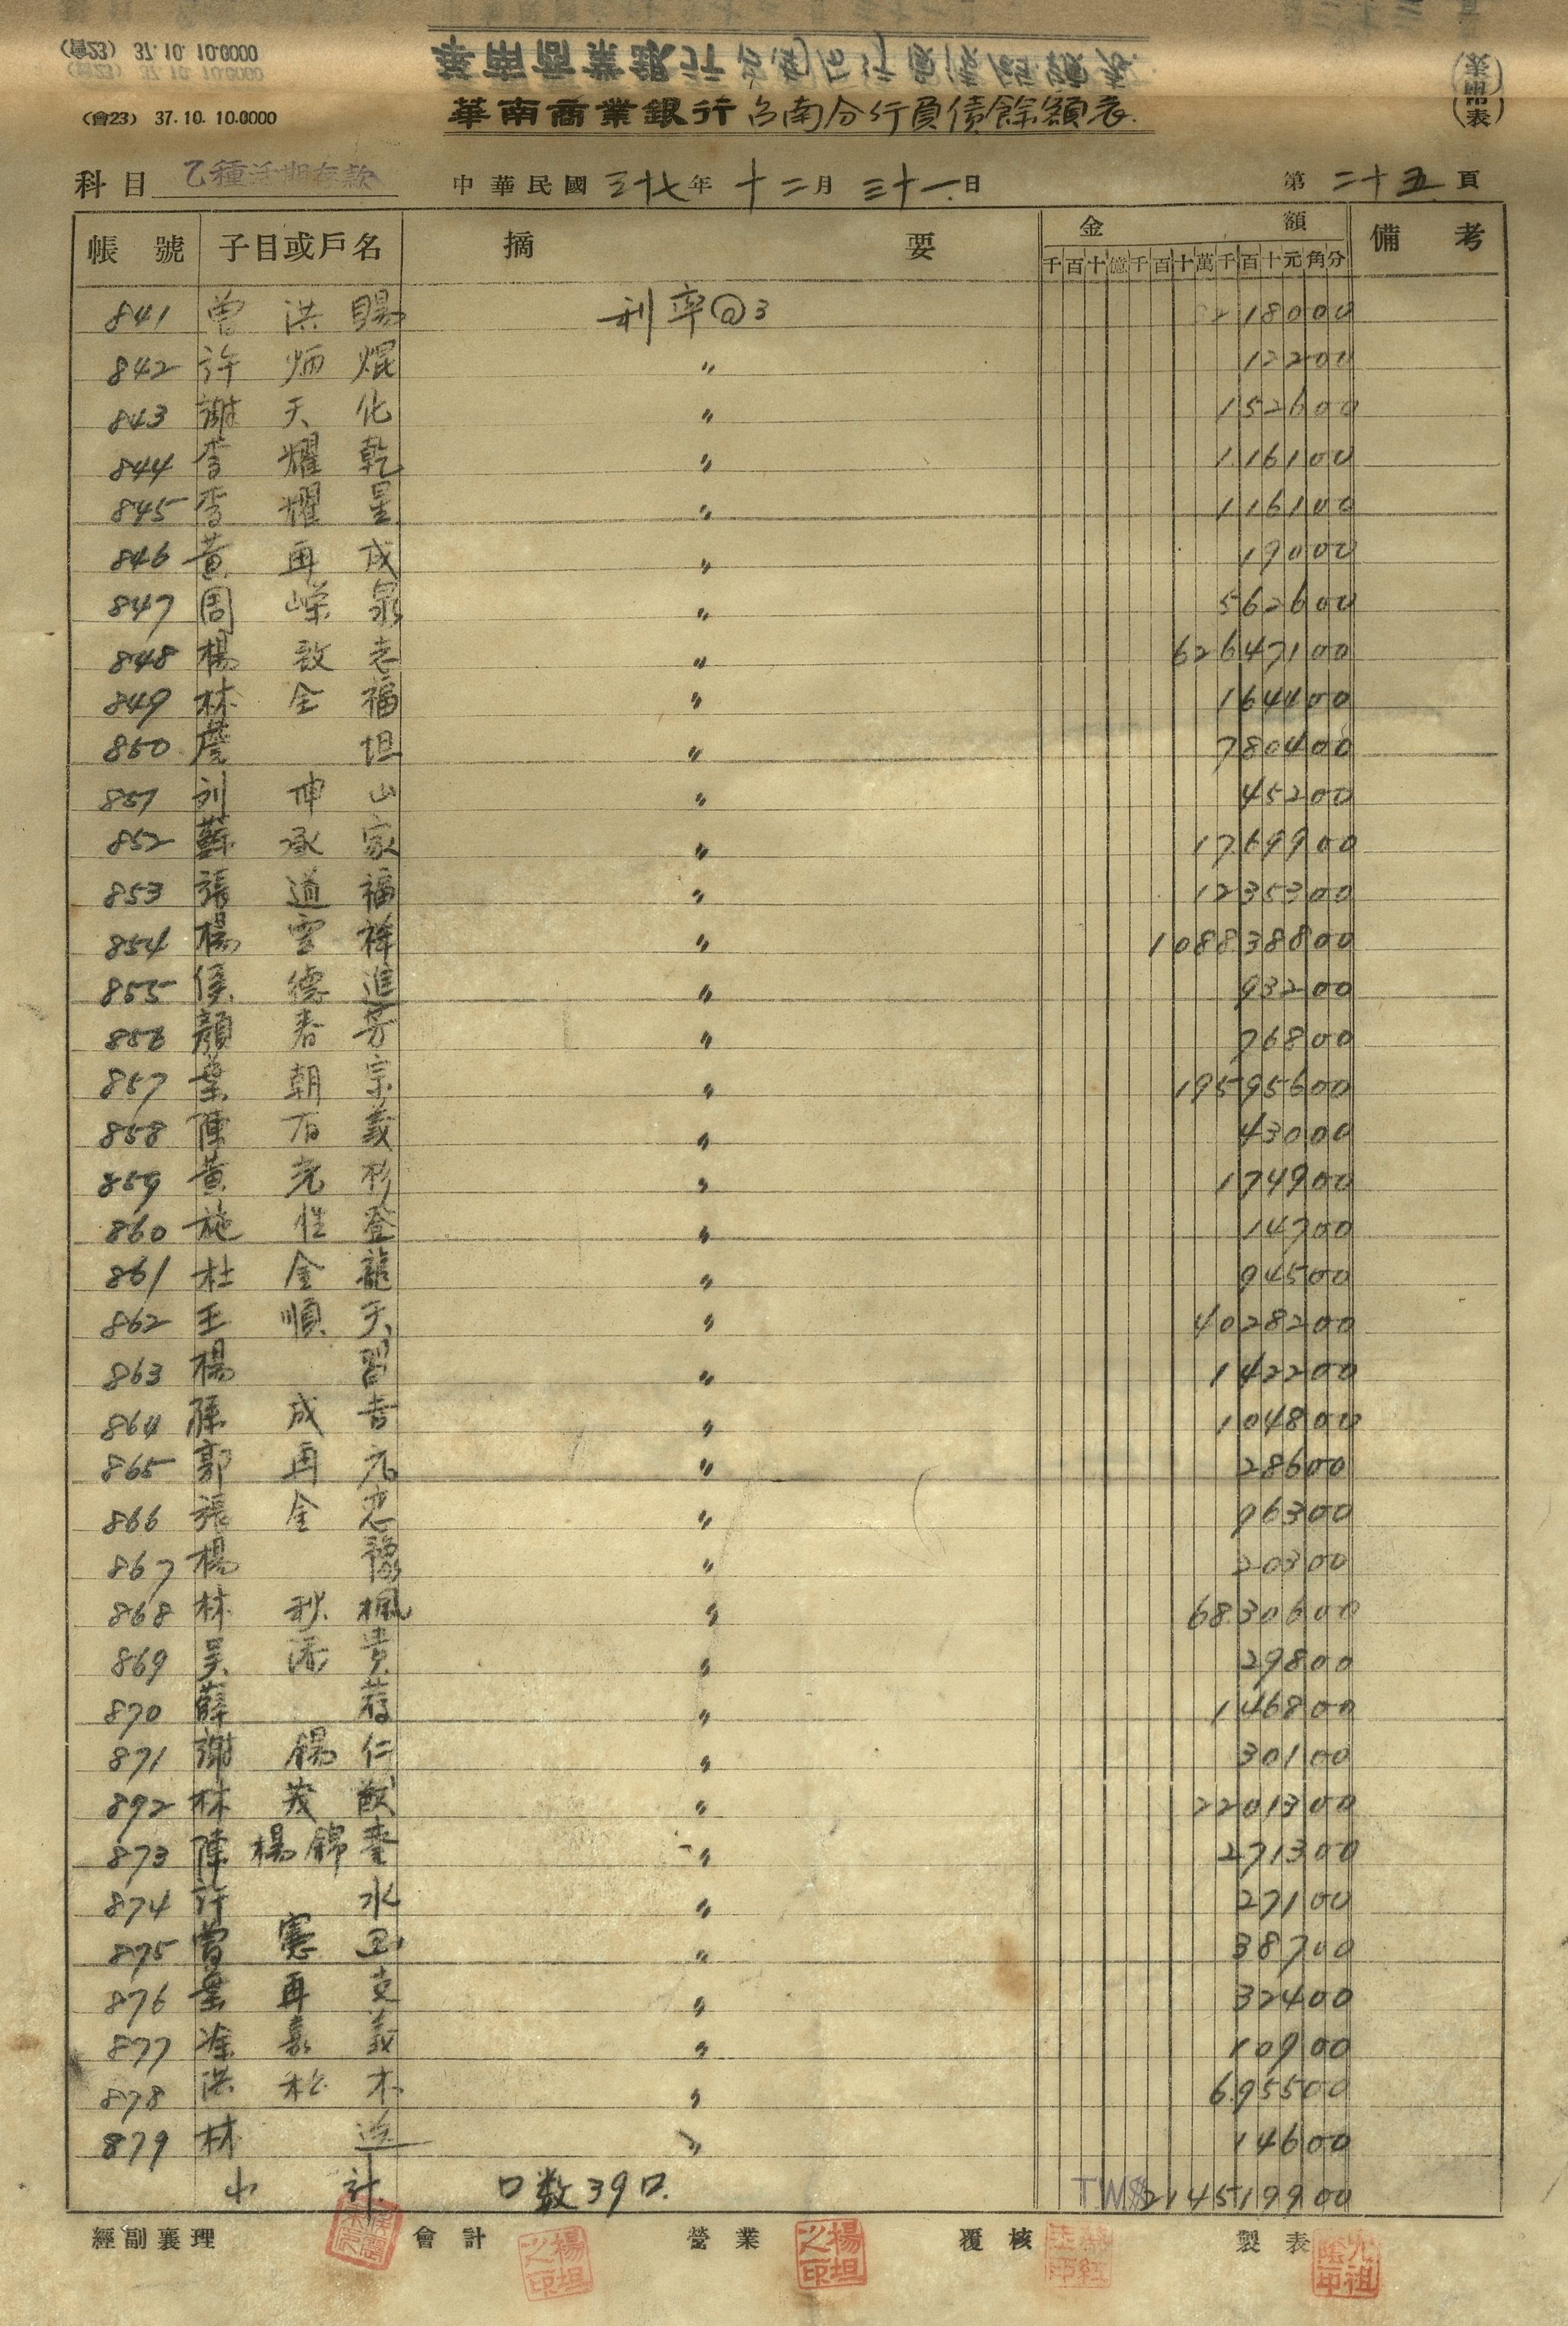 (會23) 37.10. 10.0000
華南商業銀行台南分行負債餘額表
(附表)
科目 乙種活期存款 中華民國三十七年十二月三十一日 第二十五頁
帳號 子目或戶名 摘要 金額 備考
千百十億千百十萬千百十元角分
841 曾洪賜 利率@3 18000
842 許炳焜 〃 12200
843 謝天化 〃 152600
844 李耀乾 〃 116100
845 李耀星 〃 116100
846 黃再成 〃 19000
847 周嶸泉 〃 562600
848 楊啟志 〃 62647100
849 林全福 〃 164400
850 詹坦 〃 780400
851 刘坤山 〃 45200
852 蘇承家 〃 1769900
853 張道福 〃 1235300
854 楊雲祥 〃 108838800
855 侯德進 〃 93200
856 顏春芳 〃 76800
857 葉朝宗 〃 19595600
858 陳石義 〃 43000
859 黃光彬 〃 174900
860 施性登 〃 14700
861 杜金龍 〃 94500
862 王順天 〃 4028200
863 楊習 〃 142200
864 陳成吉 〃 104800
865 郭再元 〃 28600
866 張金忠 〃 96300
867 楊豫 〃 20300
868 林秋楓 〃 6830600
869 吴添貴 〃 29800
870 薛荐 〃 146800
871 謝錫仁 〃 30100
892 林茂猷 〃 2201300
873 陳楊錦奎 〃 271300
874 許水 〃 27100
875 曾憲 〃 38700
876 葉再支 〃 32400
877 涂嘉義 〃 10900
878 洪松木 〃 695500
879 林 〃 14600
小計 口数39口. TW$214519900
經副襄理 會計 營業 覆核 製表
楊坦之印
楊坦之印